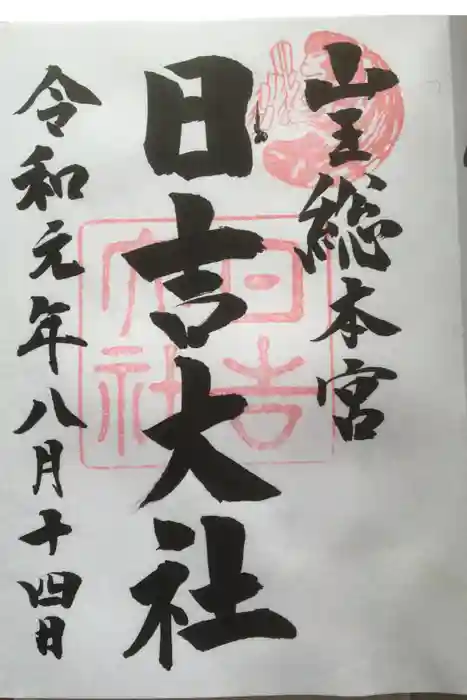 山王総本宮
日吉大社
令和元年八月十四日
日吉
大社